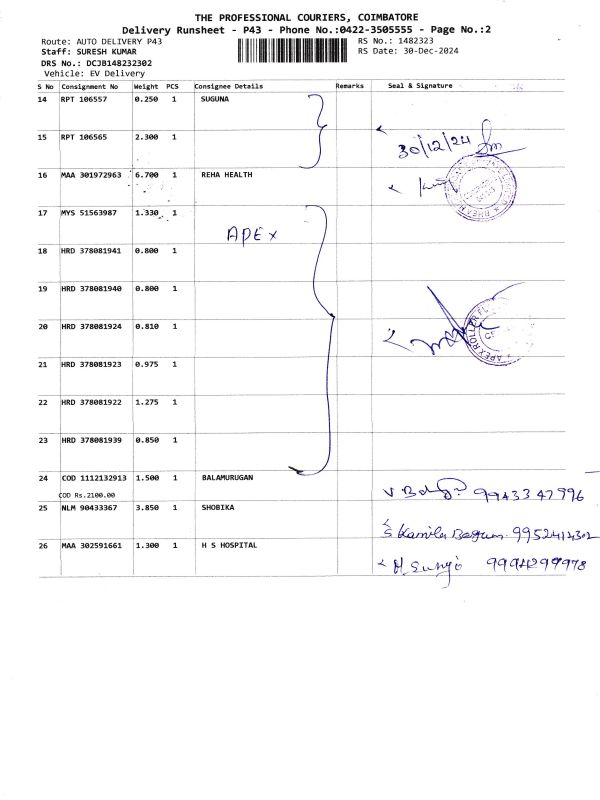 THE PROFESSIONAL COURIERS, COIMBATORE
Delivery Runsheet - P43 - Phone No.:0422-3505555 - Page No.:2
Route: AUTO DELIVERY P43 RS No.: 1482323
Staff: SURESH KUMAR RS Date: 30-Dec-2024
DRS No.: DCJB148232302
Vehicle: EV Delivery
S No Consignment No Weight PCS Consignee Details Remarks Seal & Signature
14 RPT 106557 0.250 1 SUGUNA
15 RPT 106565 2.300 1 30/12/24
16 MAA 301972963 6.700 1 REHA HEALTH
17 MYS 51563987 1.330 1
APEX
18 HRD 378081941 0.800 1
19 HRD 378081940 0.800 1
20 HRD 378081924 0.810 1
APEX ROLLER
21 HRD 378081923 0.975 1
22 HRD 378081922 1.275 1
23 HRD 378081939 0.850 1
24 COD 1112132913 1.500 1 BALAMURUGAN
COD Rs.2100.00 9943347996
25 NLM 90433367 3.850 1 SHOBIKA
S Kamila Begum 9952414302
26 MAA 302591661 1.300 1 H S HOSPITAL